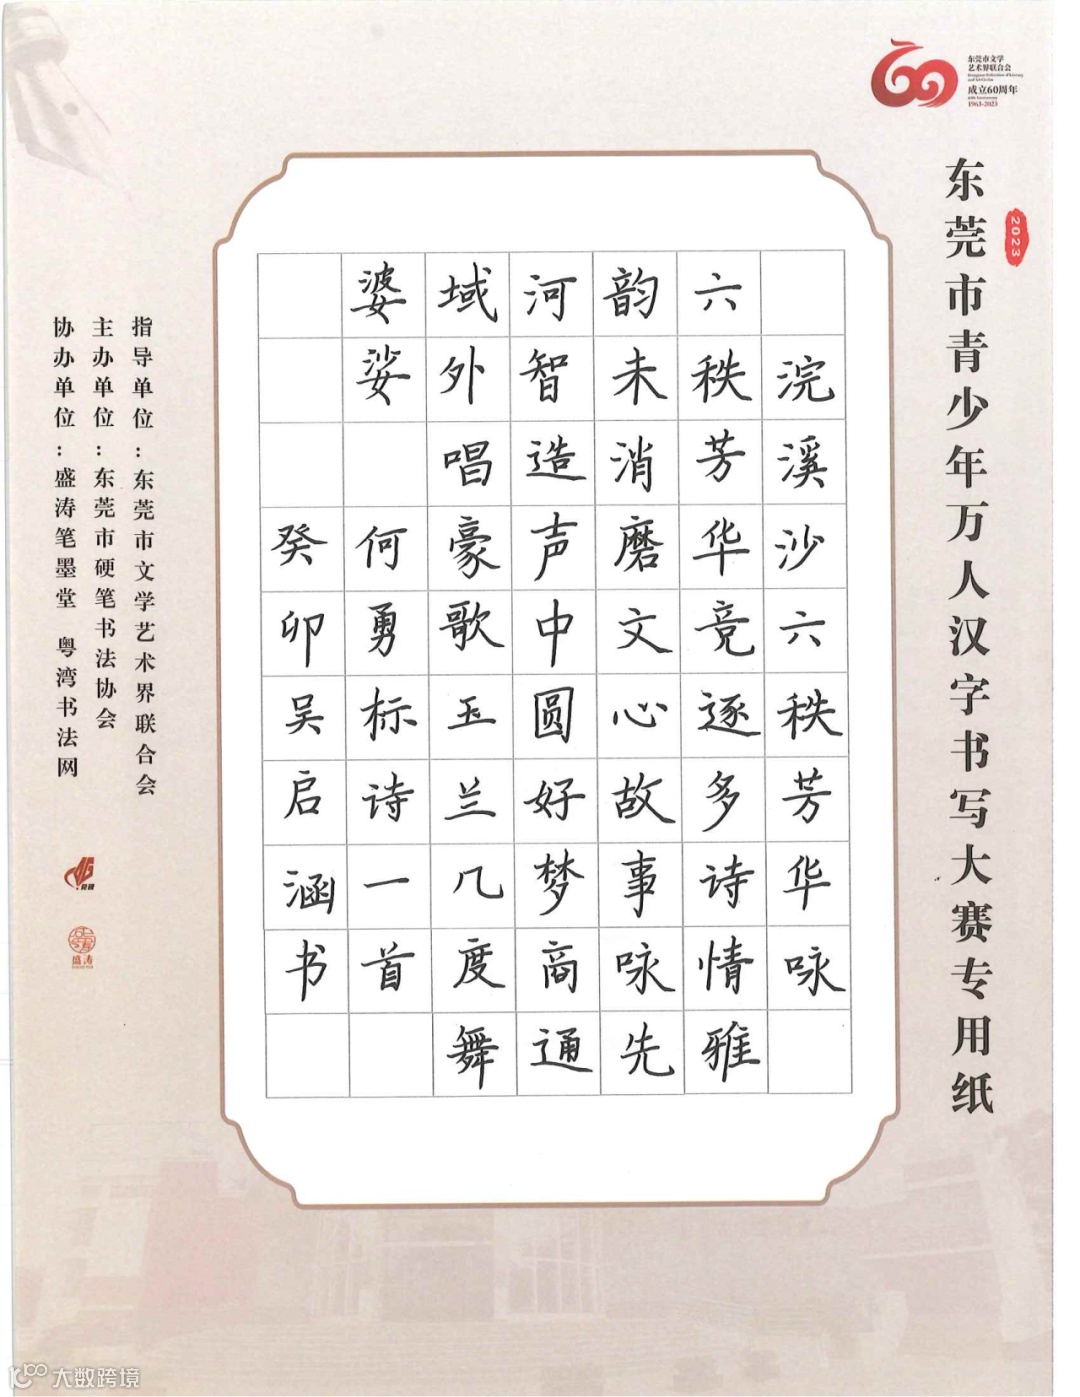 东莞市文学
艺术界联合会
成立60周年
1963-2023
2023
东莞市青少年万人汉字书写大赛专用纸
浣溪沙六秩芳华咏
六秩芳华竞逐多诗情雅
韵未消磨文心故事咏先
河智造声中圆好梦商通
域外唱豪歌玉兰几度舞
婆娑何勇标诗一首
癸卯吴启涵书
指导单位：东莞市文学艺术界联合会
主办单位：东莞市硬笔书法协会
协办单位：盛涛笔墨堂 粤湾书法网
盛涛
大数跨境